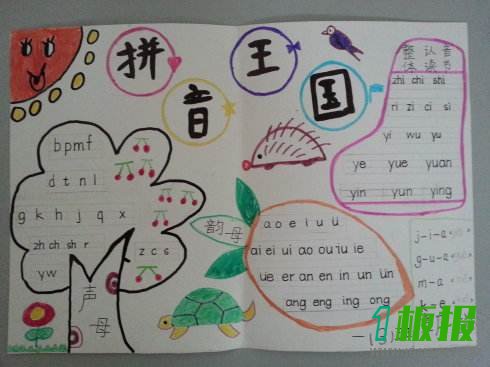 拼音王国
bpmf
d t n l
g k h j q x
zh ch sh r
z c s
y w
声母
韵母
a o e i u ü
ai ei ui ao ou iu ie
üe er an en in un ün
ang eng ing ong
整体认读音节
zhi chi shi
ri zi ci si
yi wu yu
ye yue yuan
yin yun ying
j-i-a
g-u-a
m-a
k-e
1板报